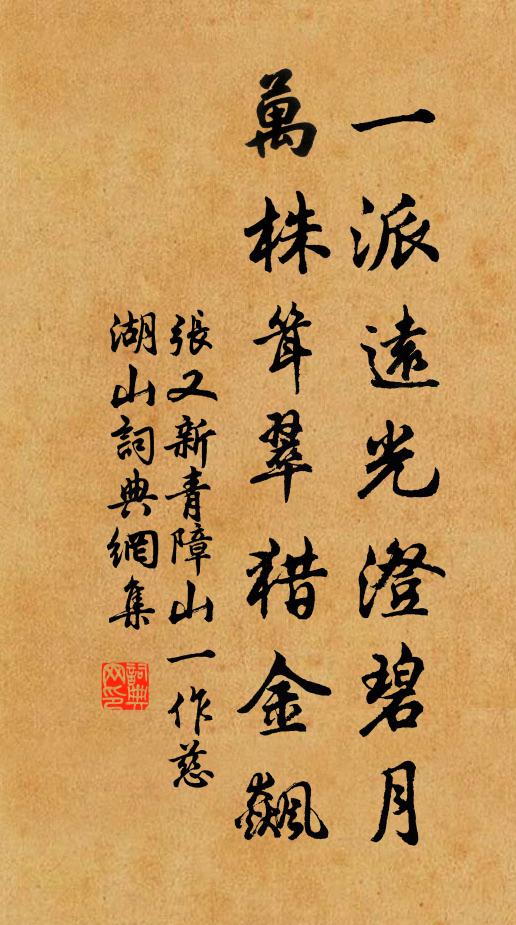 一派遠光澄碧月
萬株耸翠猎金飆
張又新青障山一作慈
湖山詞典網集
詞典网印